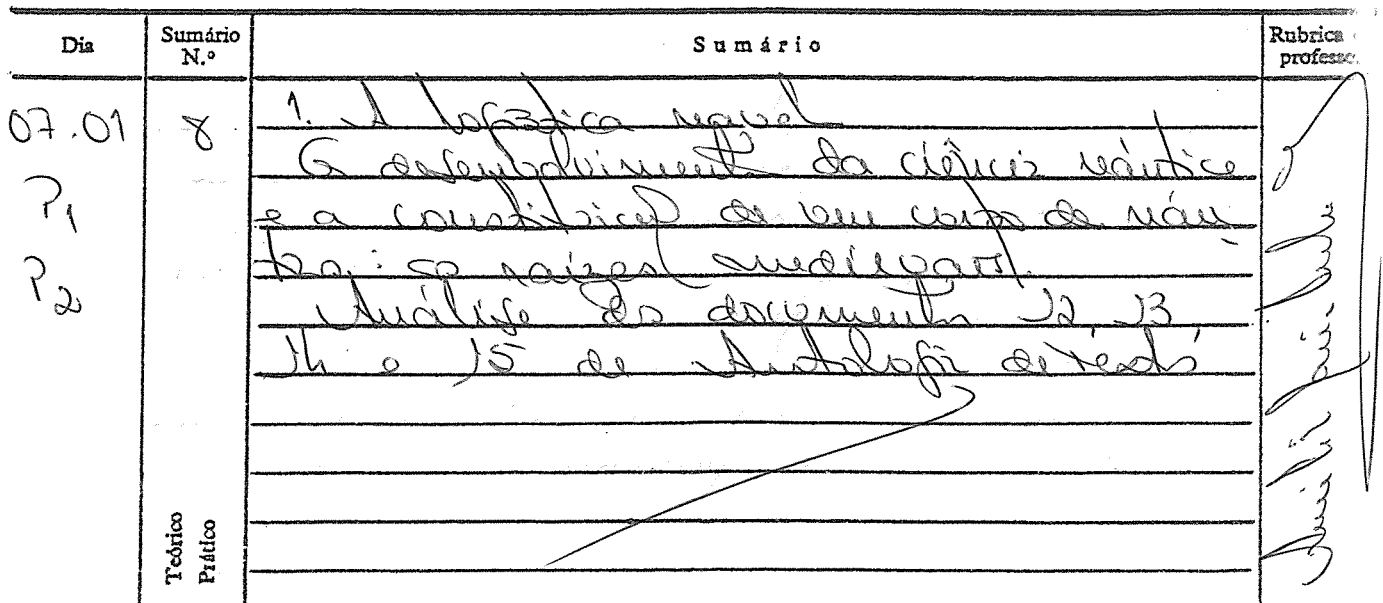 Dia
Sumário N.º
Sumário
Rubrica professo
07.01
8
P1
P2
1. A logística naval
O desenvolvimento da ciência náutica
e a constituição de um corpo de náu
tica: as raízes medievais.
Análise dos documentos 12 13
14 e 15 da Antologia de Textos
Teórico
Prático